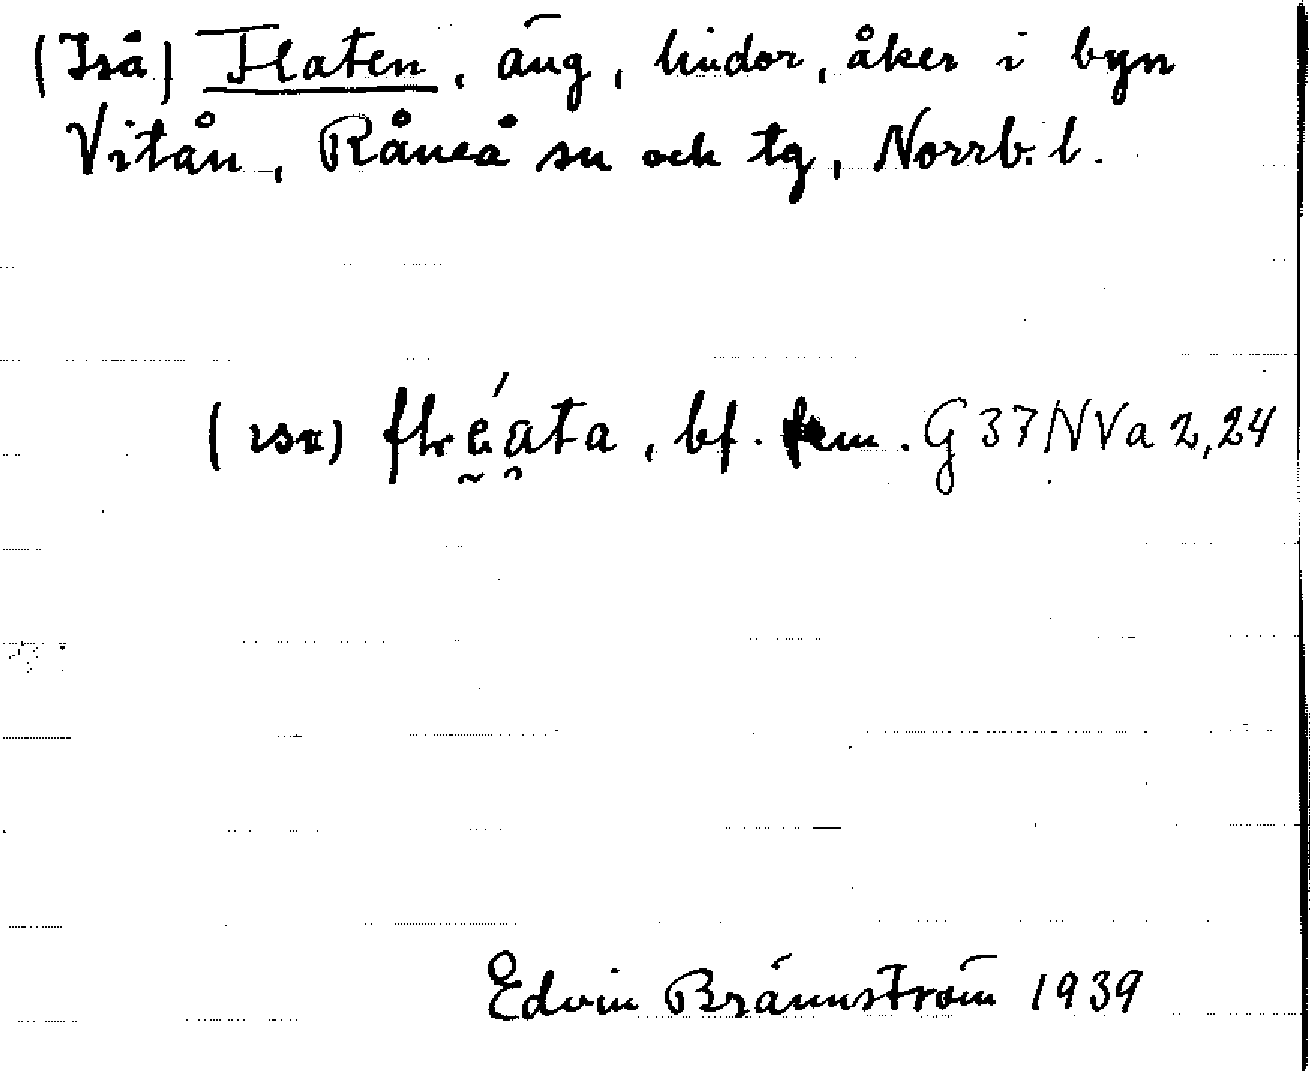 (Iså) Flaten, äng, lindor, åker i byn
Vitån, Råneå sn och tg, Norrb. l.
bf. fem. G 37 NVa 2,24
Edvin Brännström 1939